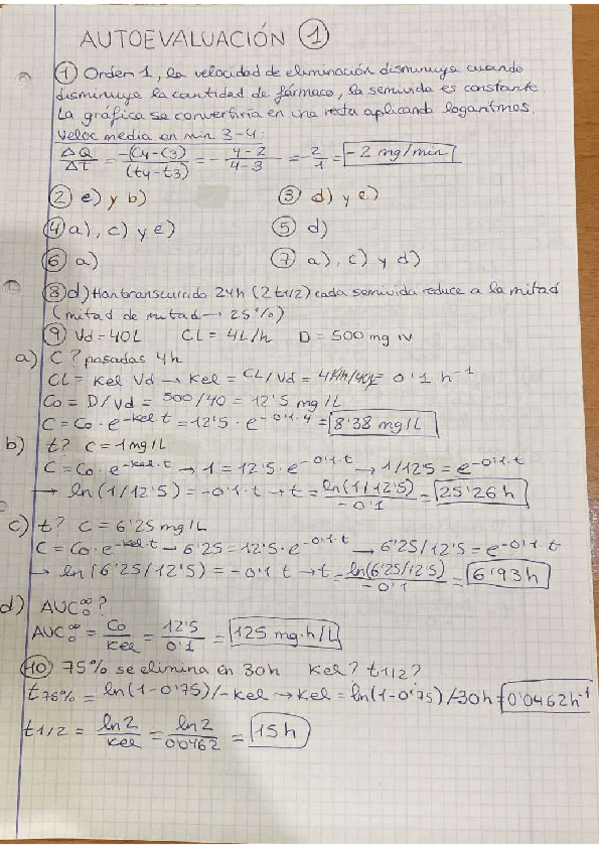 AUTOEVALUACIÓN 1
1 Orden 1, la velocidad de eliminación disminuye cuando
disminuye la cantidad de fármaco, la semivida es constante.
La gráfica se convertiría en una recta aplicando logaritmos.
Veloc media en min 3-4:
ΔQ/Δt = -(C4-C3)/(t4-t3) = - (4-2)/(4-3) = -2/1 = -2 mg/min
2 e) y b) 3 d) y e)
4 a), c) y e) 5 d)
6 a) 7 a), c) y d)
8 d) Han transcurrido 24h (2 t1/2) cada semivida reduce a la mitad
(mitad de mitad → 25%)
9 Vd = 40L CL = 4L/h D = 500 mg IV
a) C? pasadas 4h
CL = Kel · Vd → Kel = CL/Vd = 4L/h/40L = 0'1 h⁻¹
Co = D/Vd = 500/40 = 12'5 mg/L
C = Co · e^(-Kel·t) = 12'5 · e^(-0'1·4) = 8'38 mg/L
b) t? C = 1 mg/L
C = Co · e^(-Kel·t) → 1 = 12'5 · e^(-0'1·t) → 1/12'5 = e^(-0'1·t)
→ ln(1/12'5) = -0'1 · t → t = ln(1/12'5)/-0'1 = 25'26 h
c) t? C = 6'25 mg/L
C = Co · e^(-Kel·t) → 6'25 = 12'5 · e^(-0'1·t) → 6'25/12'5 = e^(-0'1·t)
→ ln(6'25/12'5) = -0'1 t → t = ln(6'25/12'5)/-0'1 = 6'93 h
d) AUC₀^∞?
AUC₀^∞ = Co/Kel = 12'5/0'1 = 125 mg·h/L
10 75% se elimina en 30h Kel? t1/2?
t75% = ln(1-0'75)/-Kel → Kel = ln(1-0'75)/30h = 0'0462 h⁻¹
t1/2 = ln2/Kel = ln2/0'0462 = 15 h